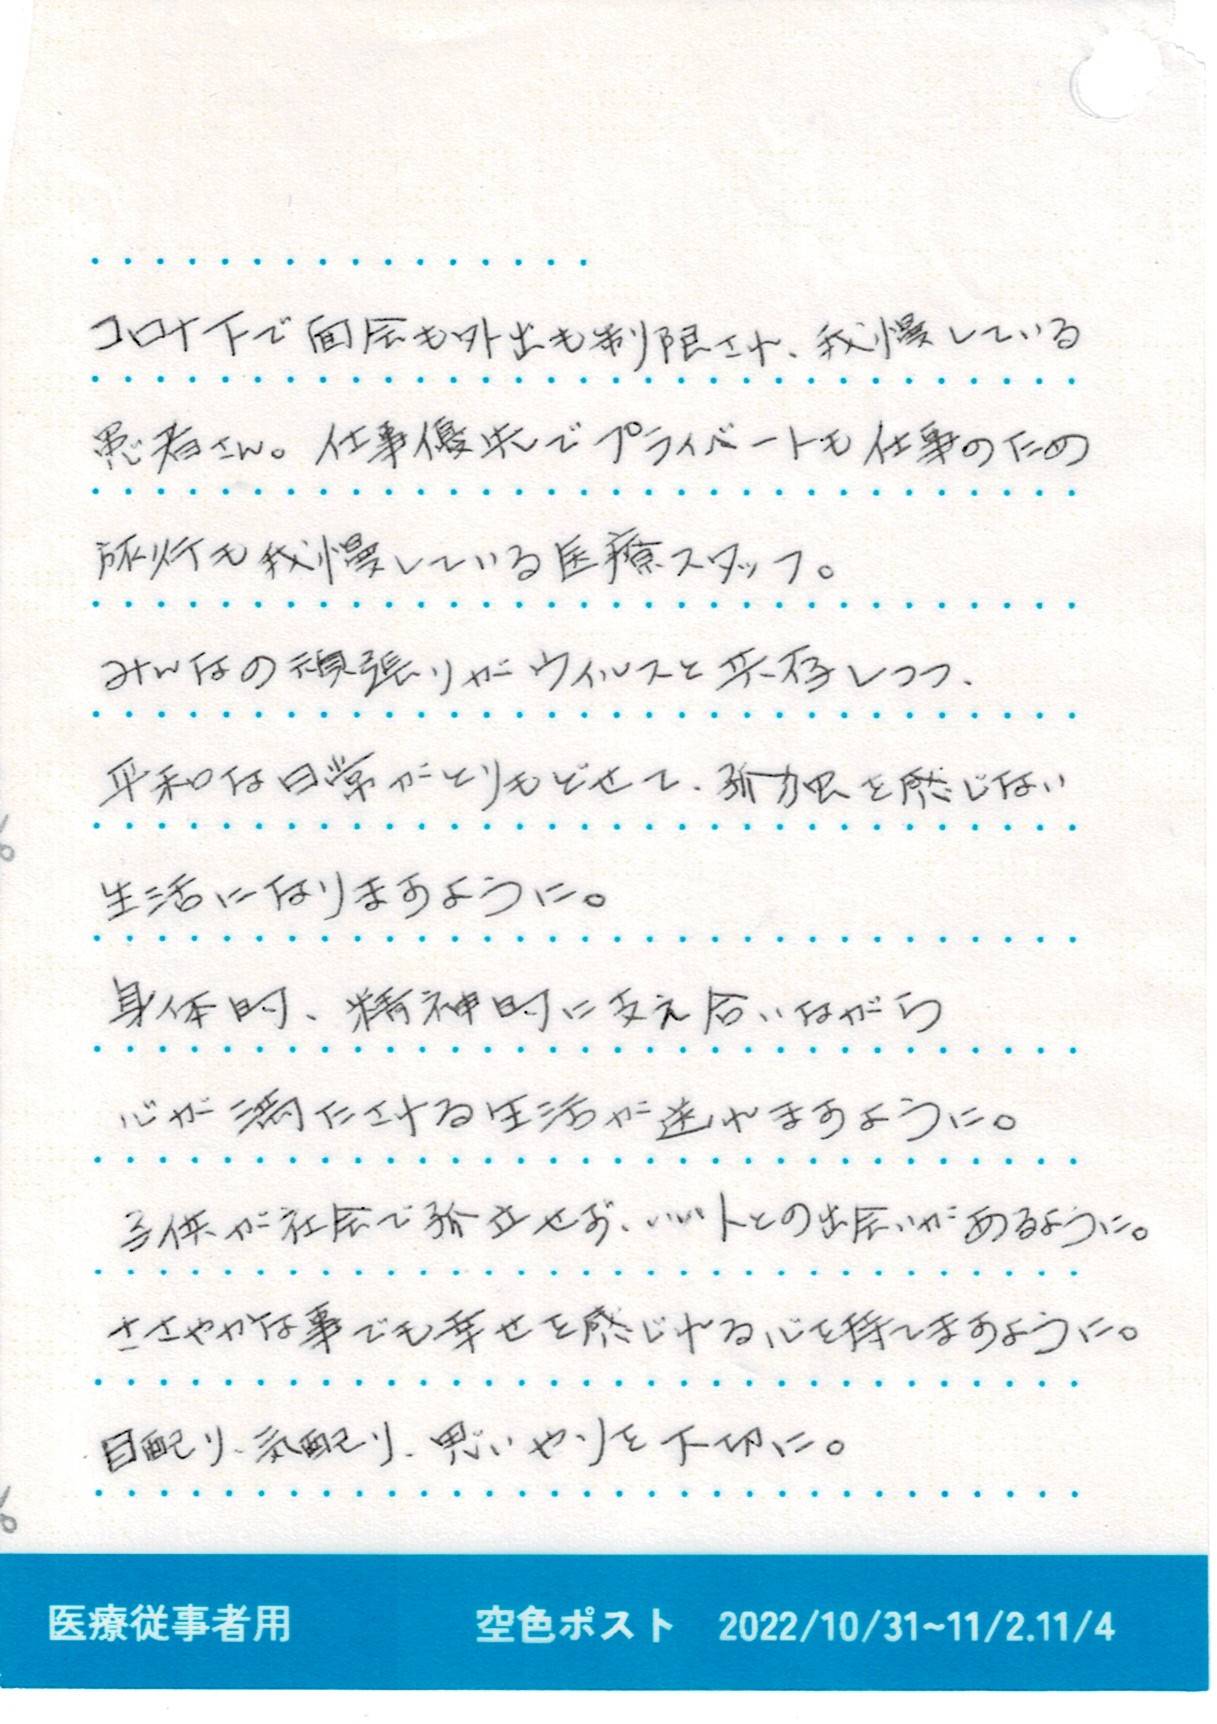 コロナ下で面会も外出も制限され、我慢している
患者さん。仕事優先でプライベートも仕事のため
旅行も我慢している医療スタッフ。
みんなの頑張りがウィルスと共存しつつ、
平和な日常がとりもどせて、孤独を感じない
生活になりますように。
身体的、精神的に支え合いながら
心が満たされる生活が送れますように。
子供が社会で孤立せず、いい人との出会いがあるように。
ささやかな事でも幸せを感じれる心を持てますように。
目配り、気配り、思いやりを大切に。
医療従事者用 空色ポスト 2022/10/31~11/2.11/4